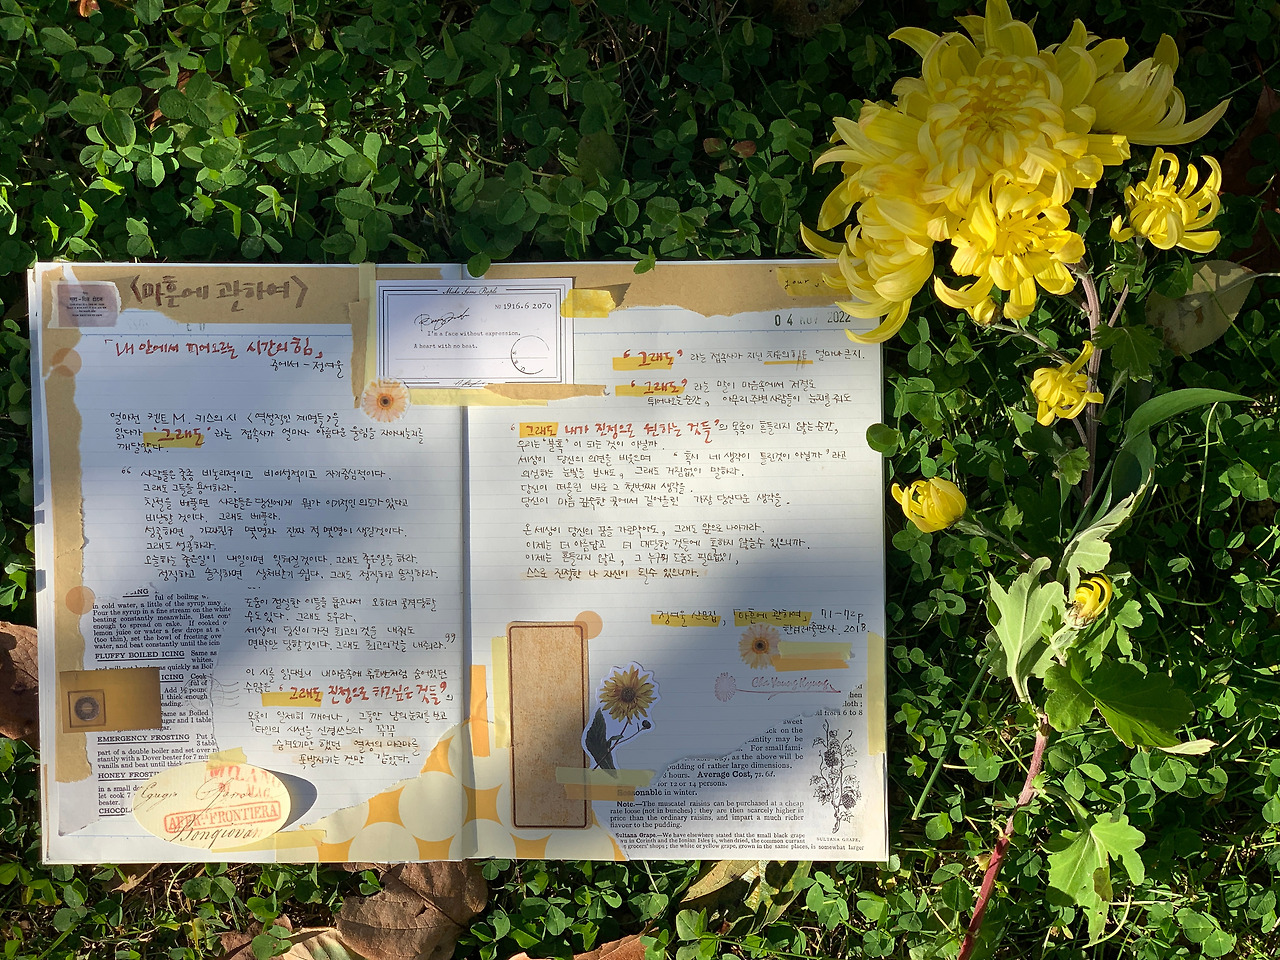 <마흔에 관하여>
「내 안에서 피어오르는 시간의 힘」
중에서 - 정여울
얼마전 켄트 M. 키스의 시 <역설적인 계명들>을
읽다가 "그래도"라는 접속사가 얼마나 아름다운 울림을 자아내는지를
깨달았다.
“ 사람들은 종종 비논리적이고 비이성적이고 자기중심적이다.
그래도 그들을 용서하라.
친절을 베풀면 사람들은 당신에게 뭔가 이기적인 의도가 있다고
비난할 것이다. 그래도 베풀라.
성공하면, 가짜친구 몇명과 진짜 적 몇명이 생길것이다.
그래도 성공하라.
오늘하는 좋은일이 내일이면 잊혀질것이다. 그래도 좋은일을 하라.
정직하고 솔직하면 상처받기 쉽다. 그래도 정직하고 솔직하라.
도움이 절실한 이들을 돕고나서 오히려 공격당할
수도있다. 그래도 도우라.
세상에 당신이 가진 최고의 것을 내줘도
면박만 당할것이다. 그래도 최고의것을 내줘라. ”
이 시를 읽다보니 내마음에 숨어있던
수많은 "그래도 진정으로 하고싶은 것들"의
목록이 일제히 깨어나, 그동안 남의눈치를 보고
타인의 시선을 신경쓰느라 꼭꼭
숨겨오기만 했던 열정의 마그마를
폭발시키는 것만 같았다.
ICING
ful of boiling w.
in cold water, a little of the syrup may
Pour the syrup in a fine stream on the
beating constantly meanwhile. Beat
until of proper consistency to spread.
lemon juice or water a few drops at a
(too thin), set the bowl of frosting over
water, and beat constantly until the icin
FLUFFY BOILED ICING Same as
white.
will not harden quickly as Boil
ICING Cook
ful of
Add ½ pound
thick enough
Same as Boiled
sugar and 1 table
sugar.
EMERGENCY FROSTING Put 1
part of a double boiler and set over
constantly with a Dover beater for 7 min
vanilla and beat until thick
HONEY FROSTING
in a small
let cook 7
beater.
CHOCOL
MILAN
APEK FRONTIERA
Make Some People
No 1916.6 2070
I'm a face without expression,
A heart with no beat.
your
04 NOV 2022
"그래도" 라는 접속사가 지닌 치유의힘은 얼마나큰지.
"그래도" 라는 말이 마음속에서 저절로
튀어나오는순간, 아무리 주변사람들이 눈치를 줘도
"그래도 내가 진정으로 원하는 것들"의 목록이 흔들리지 않는순간,
우리는 '불혹'이 되는 것이 아닐까.
세상이 당신의 의견을 비웃으며 "혹시 네 생각이 틀린것이 아닐까"라고
의심하는 눈빛을 보내도, 그래도 거침없이 말하라.
당신이 떠올린 바로 그 첫번째 생각을.
당신이 마음 깊숙한 곳에서 길어올린 가장 당신다운 생각을.
온 세상이 당신의 꿈을 가로막아도, 그래도 앞으로 나아가라.
이제는 더 아름답고 더 대담한 것들에 혹하지 않을수 있으니까.
이제는 흔들리지 않고, 그 누구의 도움도 필요없이,
스스로 진정한 나 자신이 될수 있으니까.
정여울 산문집, 「마흔에 관하여」 71-72p
한겨레출판사 2018.
cloth;
from 6 to 8
sweet
quantity may be
For small fami-
way, as the above will
pudding of rather large dimensions.
3 hours. Average Cost, 7s. 6d.
for 12 or 14 persons.
Seasonable in winter.
Note.—The muscatel raisins can be purchased at a cheap
rate loose (not in bunches); they are then scarcely higher in
price than the ordinary raisins, and impart a much richer
flavour to the pudding.
Sultana Grape.—We have elsewhere stated that the small black grape
grown in Corinth and the Ionian Isles is, when dried, the common currant
of the grocers' shops; the white or yellow grape, grown in the same places, is somewhat larger
SULTANA GRAPE.